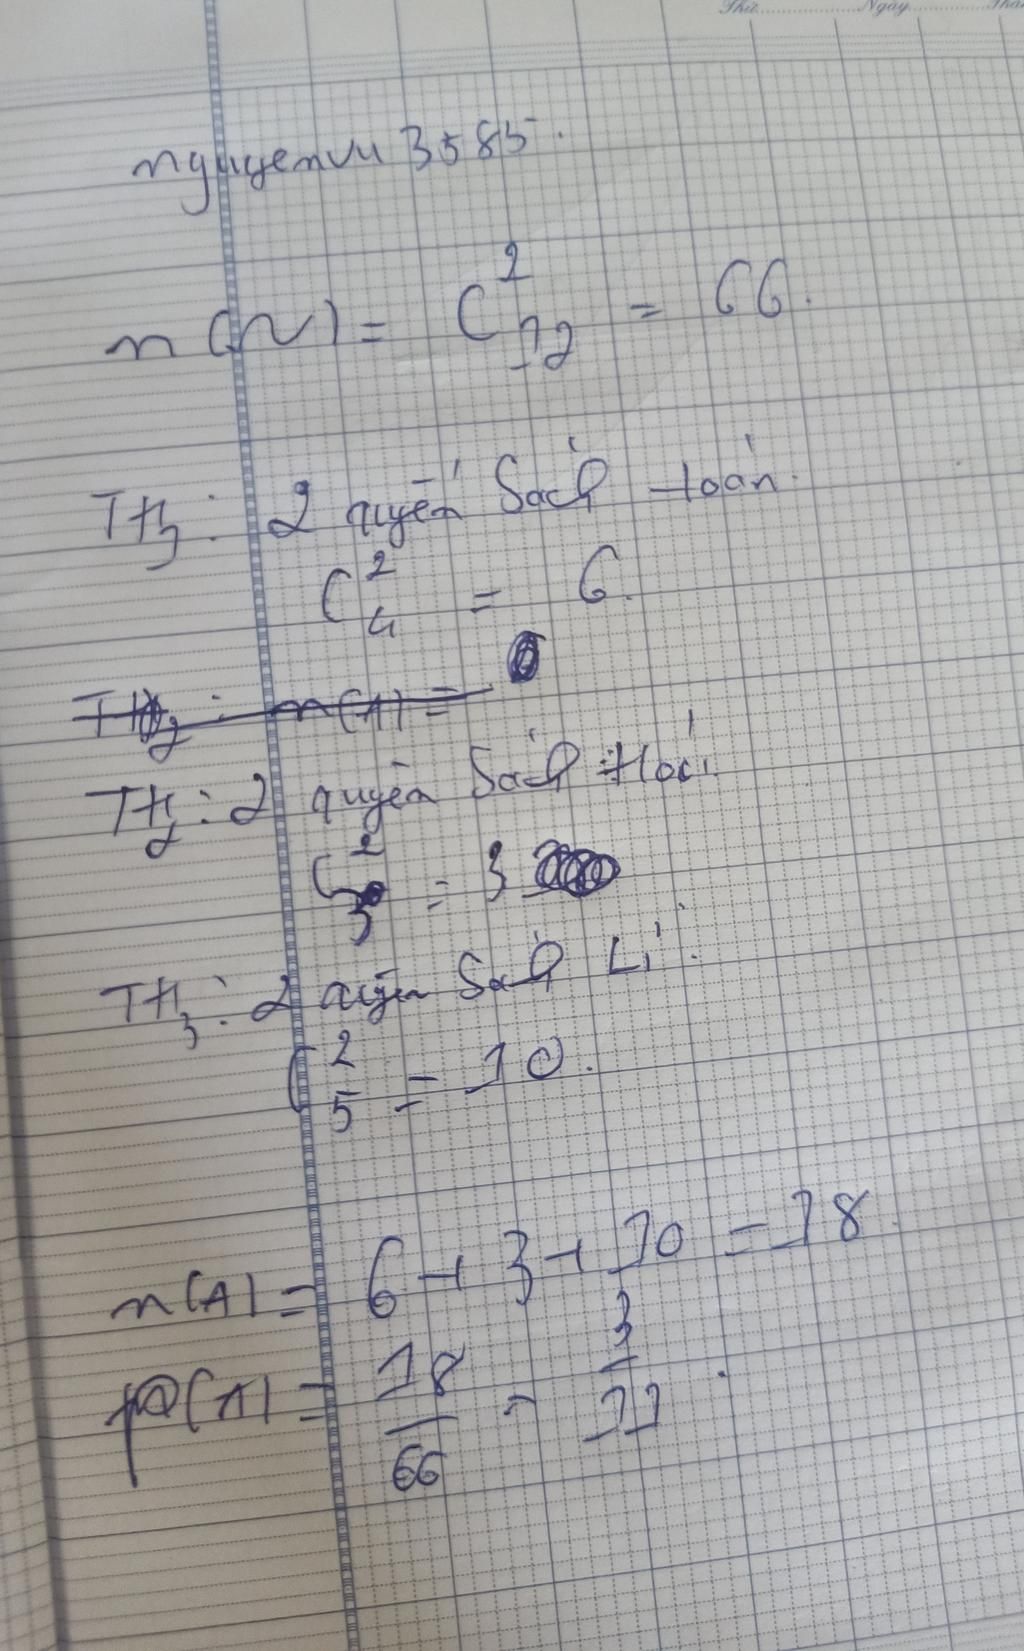 Thứ Ngày
nguyenvu 3585.
n(Ω) = C²₁₂ = 66.
TH₁: 2 quyển Sách toán.
C²₄ = 6.
TH₂: n(A) =
TH₂: 2 quyển Sách Hoá.
C²₃ = 3
TH₃: 2 quyển Sách Lí.
C²₅ = 10.
n(A) = 6 + 3 + 10 = 18.
p(A) = 18/66 = 3/11.